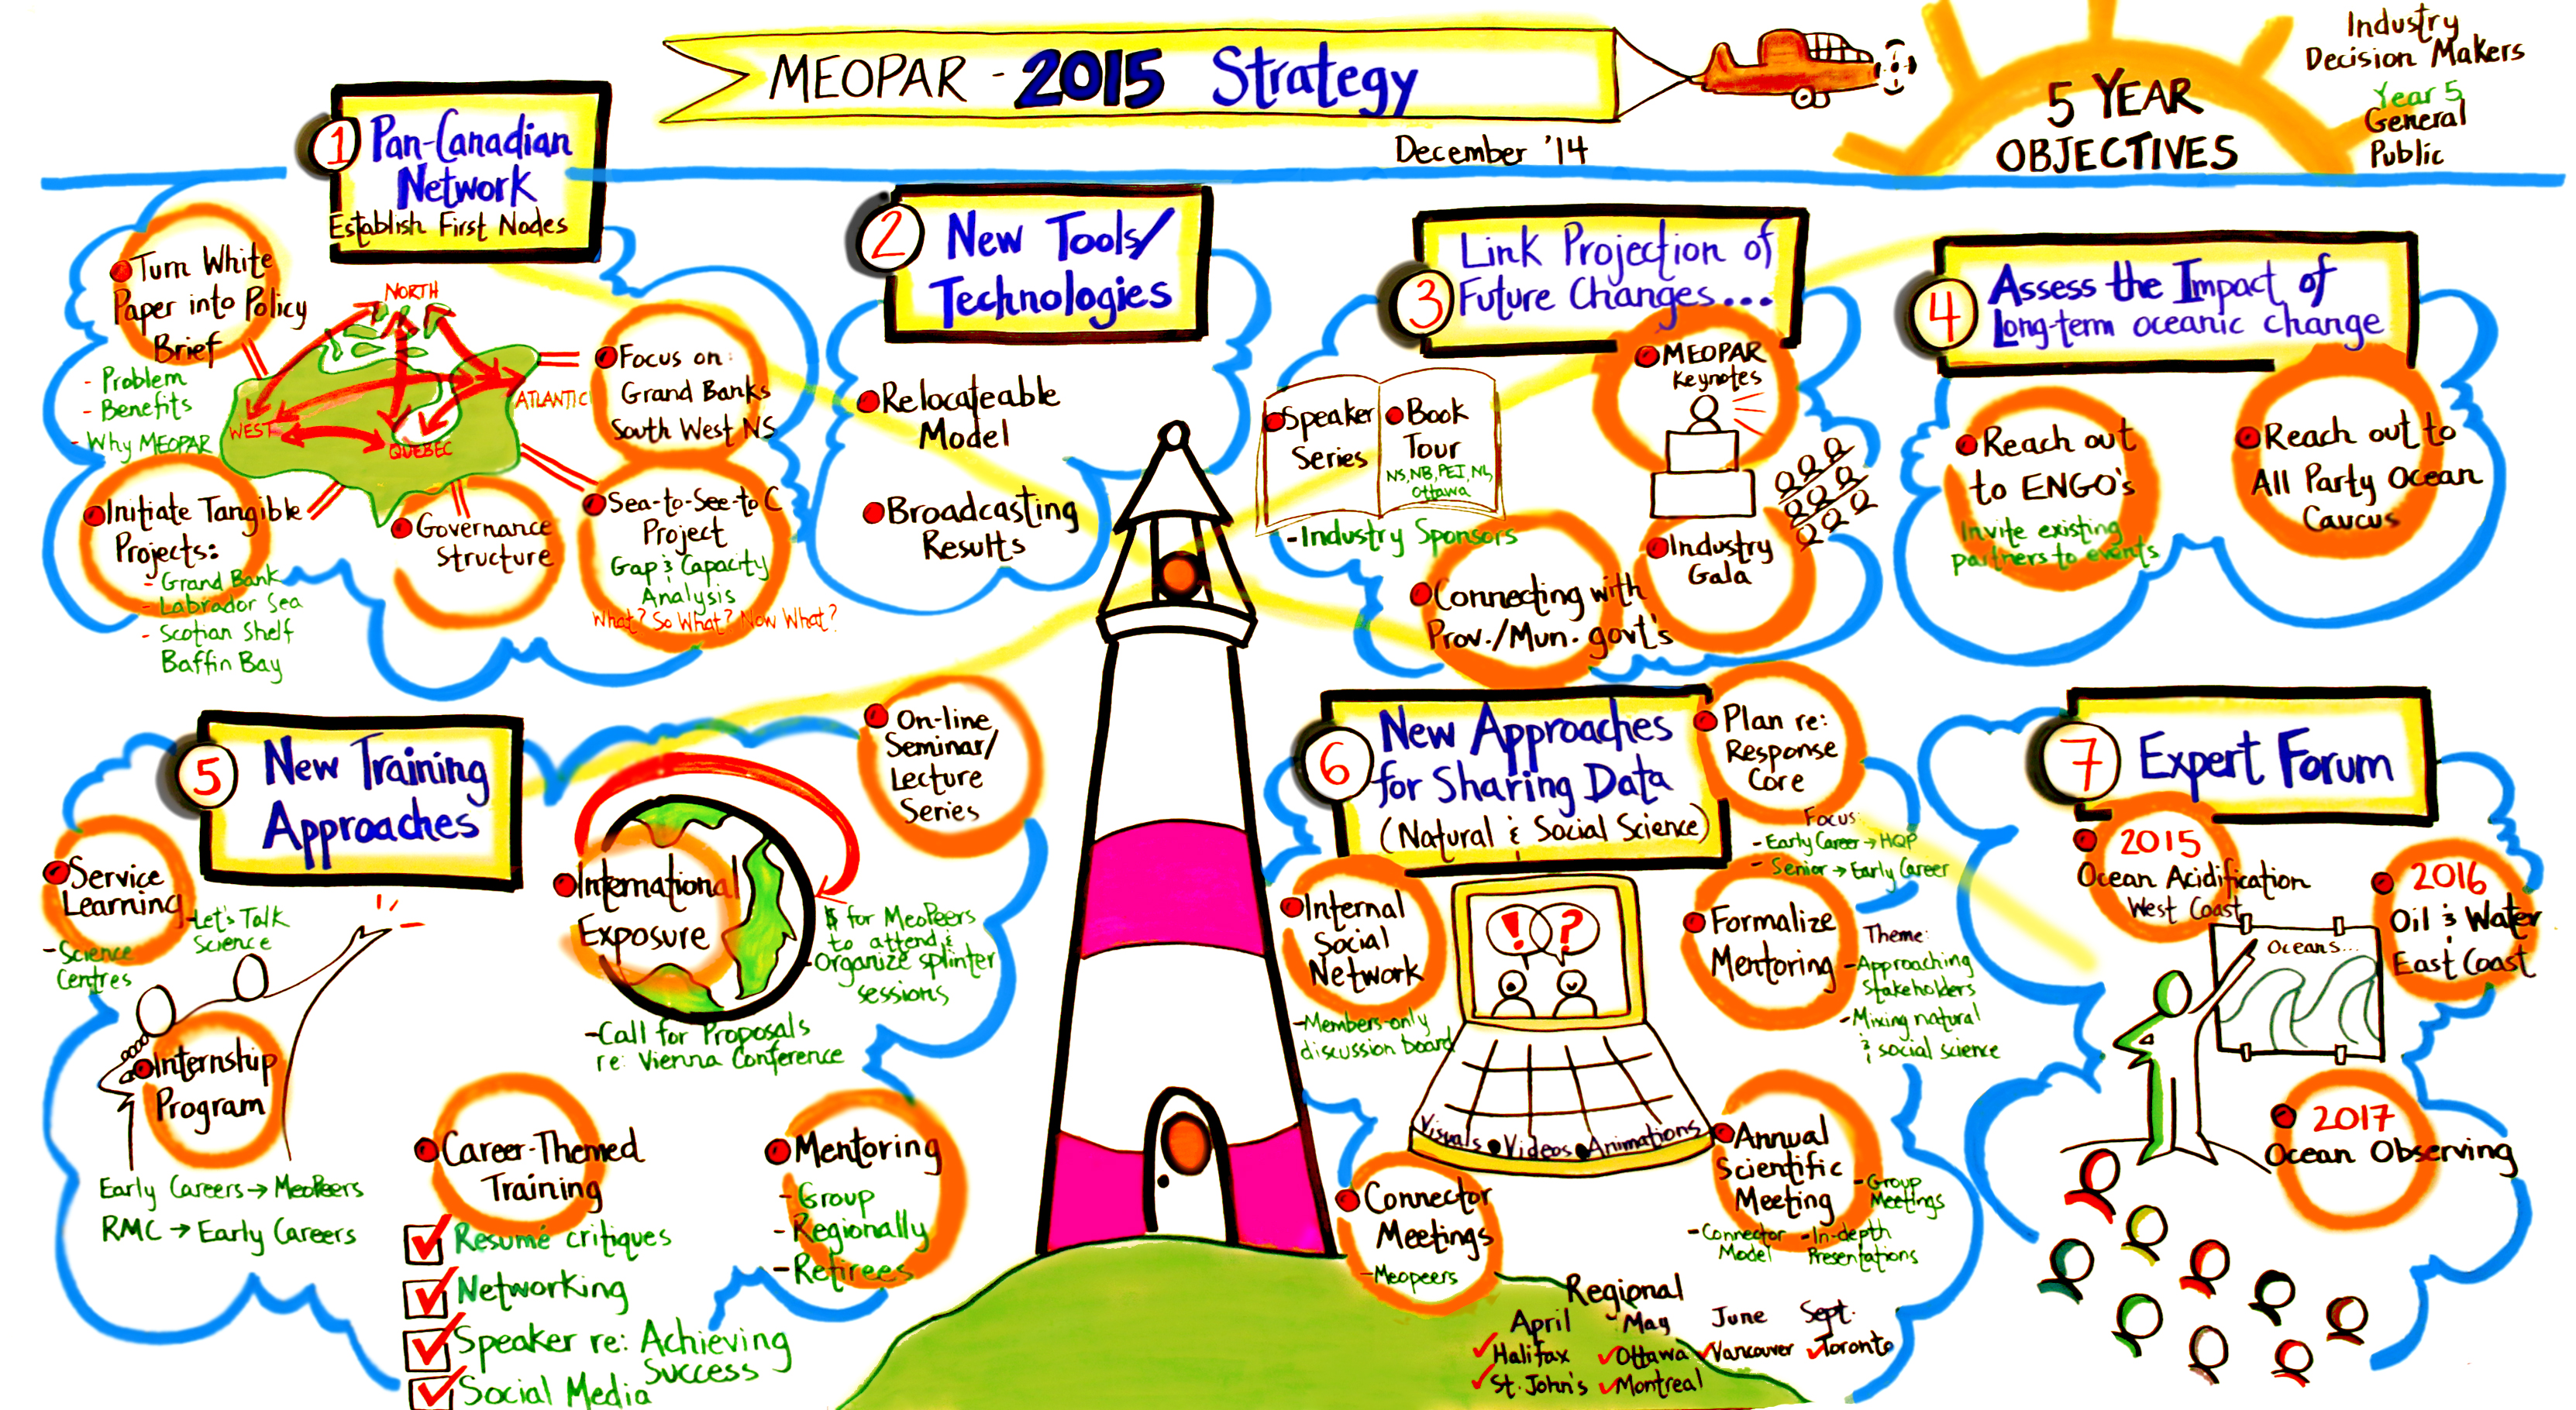 MEOPAR - 2015 Strategy
December '14
5 YEAR
OBJECTIVES
Industry
Decision Makers
Year 5
General
Public
1
Pan-Canadian
Network
Establish First Nodes
Turn White
Paper into Policy
Brief
- Problem
- Benefits
- Why MEOPAR
NORTH
WEST
QUEBEC
ATLANTIC
Focus on:
Grand Banks
South West NS
Initiate Tangible
Projects:
- Grand Bank
- Labrador Sea
- Scotian Shelf
Baffin Bay
Governance
Structure
Sea-to-See-to C
Project
Gap & Capacity
Analysis
What? So What? Now What?
2
New Tools/
Technologies
Relocateable
Model
Broadcasting
Results
3
Link Projection of
Future Changes...
Speaker
Series
Book
Tour
NS, NB, PEI, NL,
Ottawa
- Industry Sponsors
MEOPAR
Keynotes
Industry
Gala
Connecting with
Prov./Mun. govt's
4
Assess the Impact of
Long-term oceanic change
Reach out
to ENGO's
Invite existing
partners to events
Reach out to
All Party Ocean
Caucus
5
New Training
Approaches
Service
Learning
- Let's Talk
Science
- Science
Centres
Internship
Program
Early Careers → MeoPeers
RMC → Early Careers
International
Exposure
$ for MeoPeers
to attend &
- Organize splinter
sessions
- Call for Proposals
re: Vienna Conference
On-line
Seminar/
Lecture
Series
Career-Themed
Training
Resumé critiques
Networking
Speaker re: Achieving
Success
Social Media
Mentoring
- Group
- Regionally
- Retirees
6
New Approaches
for Sharing Data
(Natural & Social Science)
Plan re:
Response
Core
Focus:
- Early Career → HQP
- Senior → Early Career
Internal
Social
Network
- Members-only
discussion board
! ?
Visuals • Videos • Animations
Formalize
Mentoring
Theme:
- Approaching
Stakeholders
- Mixing natural
& social science
Connector
Meetings
- Meopeers
Annual
Scientific
Meeting
- Group
Meetings
- Connector
Model
- In-depth
Presentations
Regional
April May June Sept.
Halifax Ottawa Vancouver Toronto
St. John's Montreal
7
Expert Forum
2015
Ocean Acidification
West Coast
2016
Oil & Water
East Coast
Oceans...
2017
Ocean Observing